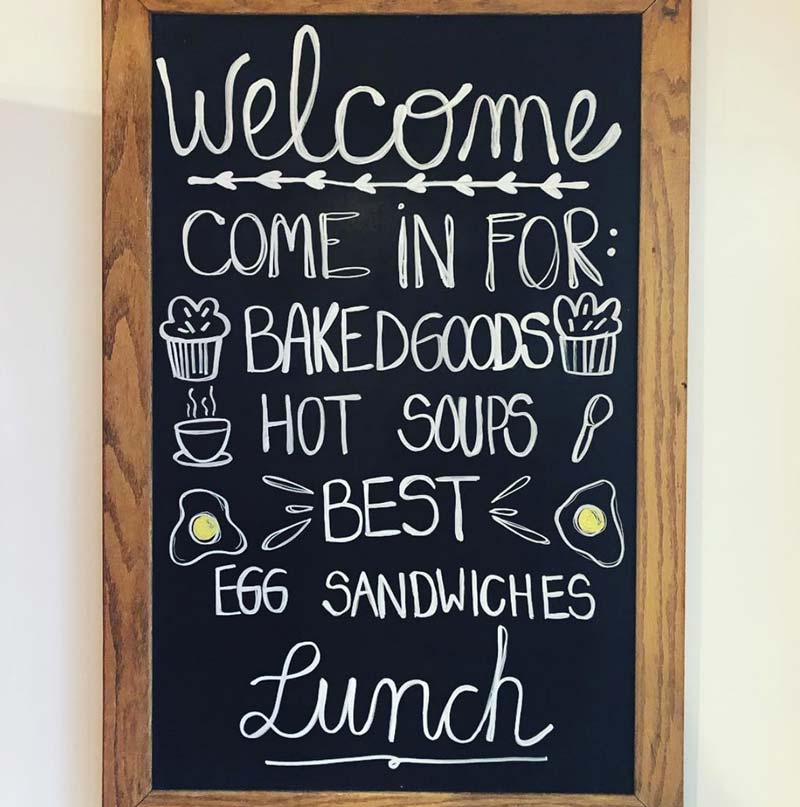 Welcome
COME iN FOR:
BAKED GOODS
HOT SOUPS
BEST
EGG SANDWICHES
Lunch